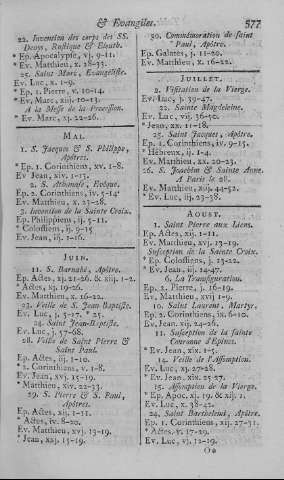 & Evangiles. 577
22. Invention des corps des SS.
Denys, Rustique & Eleuth.
* Ep. Apocalypse, vj. 9-11.
* Ev. Matthieu, x. 28-33.
25. Saint Marc, Evangéliste.
Ev. Luc, x. 1-9.
* Ep. 1. Pierre, v. 10-14.
* Ev, Marc, xiij. 10-13.
A la Messe de la Procession.
* Ev. Marc, xj. 22-26.
MAI.
1. S. Jacques & S. Philippe,
Apôtres.
* Ep. 1. Corinthiens, xv. 1-8.
Ev Jean, xiv. 1-13.
2. S. Athanase, Evêque.
Ep. 2. Corinthiens, iv. 5-14*
Ev. Matthieu, x. 23-28.
3. Invention de la Sainte Croix.
Ep. Philippiens, ij. 5-11.
* Colossiens, ij. 9-15
Ev. Jean, iij. 1-16.
JUIN.
11. S. Barnabé, Apôtre.
Ep. Actes, xj. 21-26. & xiij. 1-2.
* Actes, xj. 19-26.
Ev. Matthieu, x. 16-22.
23. Veille de S. Jean-Baptiste.
Ev. Luc, j. 5-17. * 25.
24. Saint Jean-Baptiste.
Ev. Luc, j. 57-68.
28. Veille de Saint Pierre &
Saint Paul.
Ep. Actes, iij. 1-10.
* 2. Corinthiens, v. 1-8.
Ev. Jean, xvj. 15-19.
* Matthieu, xiv. 22-33.
29. S. Pierre & S. Paul,
Apôtres.
Ep. Actes, xij. 1-11.
* Actes, iv. 8-20.
Ev. Matthieu, xvj. 13-19.
* Jean, xxj. 15-19.
30. Commémoration de saint
Paul, Apôtre.
Ep. Galates, j. 11-20.
Ev. Matthieu, x. 16-22.
JUILLET.
2. Visitation de la Vierge.
Ev. Luc, j. 39-47.
22. Sainte Magdeleine.
Ev. Luc, vij. 36-50.
* Jean, xx. 11-18.
25. Saint Jacques, Apôtre.
Ep. 1. Corinthiens, iv. 9-15.
* Hébreux, ij. 1-4.
Ev. Matthieu, xx. 20-23.
26. S. Joachim & Sainte Anne.
A Paris le 28.
Ev. Matthieu, xiij. 44-52.
* Ev. Luc, iij. 23-38
AOUST.
1. Saint Pierre aux Liens.
Ep. Actes, xij. 1-11.
Ev. Matthieu, xvj. 13-19.
Susception de la Sainte Croix.
* Ep. Colossiens, j. 13-22.
* Ev. Jean, iij. 14-17.
6. La Transfiguration.
Ep. 2. Pierre, j. 16-19.
Ev. Matthieu, xvij 1-9.
10. Saint Laurent, Martyr.
Ep. 2. Corinthiens, ix. 6-10.
Ev. Jean. xij. 24-26.
11. Susception de la sainte
Couronne d'Epines.
* Ev. Jean, xix. 1-5.
14. Veille de l'Assomption.
Ev. Luc, xj. 27-28.
* Ev. Jean, xix. 25-27.
15. Assomption de la Vierge.
* Ep. Apoc. xj. 19 & xij. 1.
Ev. Luc, x. 38-42.
24. Saint Barthélemi, Apôtre.
Ep. 1. Corinthiens, xij. 27-31.
* Actes, v. 17-29.
Ev. Luc, vj. 12-19.